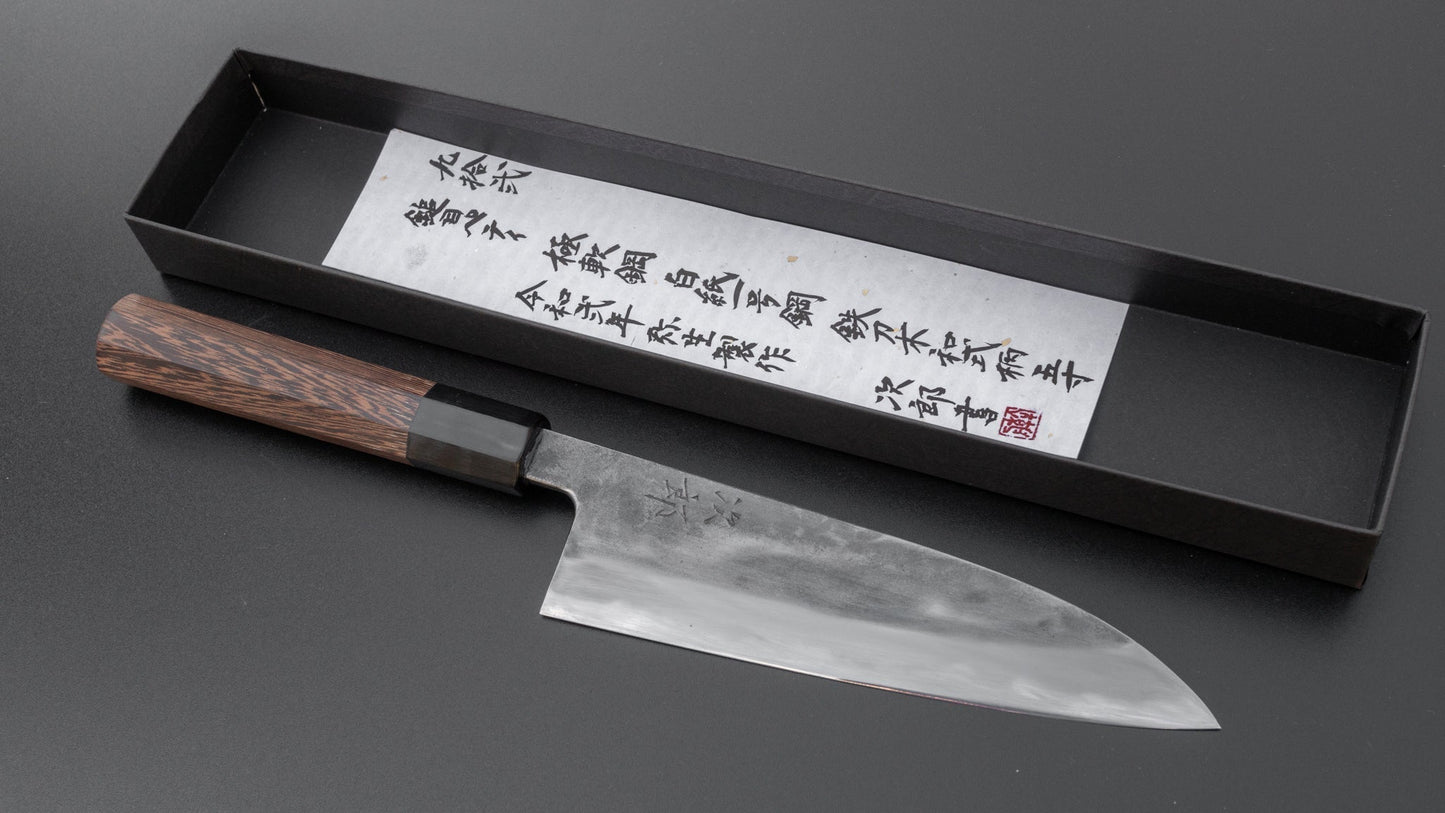 九拾弐
鎚目ペティ
極軟鋼 白紙一号鋼 鉄刀木和式柄 五寸
令和弐年弥生製作 次郎 書
次郎